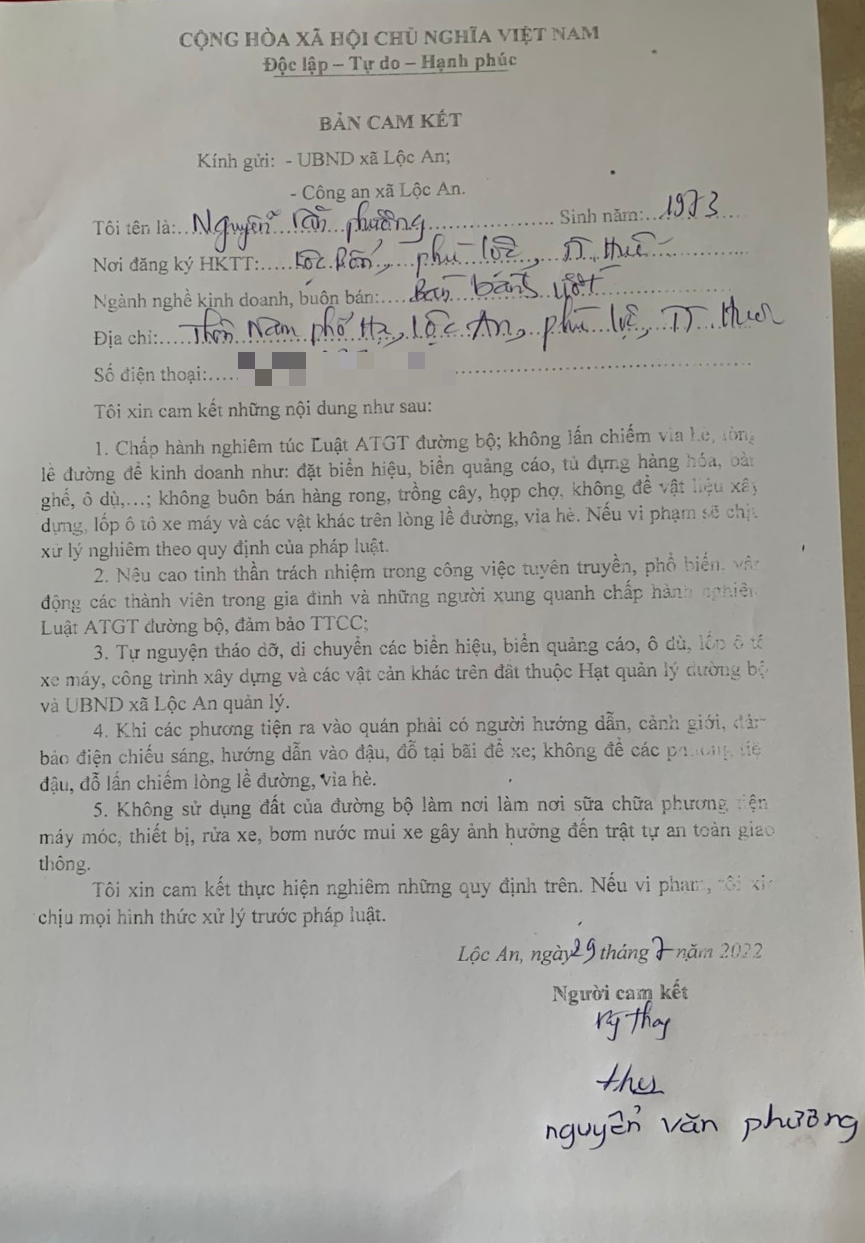 CỘNG HÒA XÃ HỘI CHỦ NGHĨA VIỆT NAM
Độc lập – Tự do – Hạnh phúc
BẢN CAM KẾT
Kính gửi: - UBND xã Lộc An;
- Công an xã Lộc An.
Tôi tên là:.. Nguyễn Văn phương ............ Sinh năm:.. 1973
Nơi đăng ký HKTT:.... phú lộc, TT Huế
Ngành nghề kinh doanh, buôn bán:.... Bán bánh
Địa chỉ:.... Thôn Nam phổ Hạ, Lộc An, phú lộc, TT Huế
Số điện thoại:....
Tôi xin cam kết những nội dung như sau:
1. Chấp hành nghiêm túc Luật ATGT đường bộ; không lấn chiếm vỉa hè, lòng
lề đường để kinh doanh như: đặt biển hiệu, biển quảng cáo, tủ đựng hàng hóa, bàn
ghế, ô dù,...; không buôn bán hàng rong, trồng cây, họp chợ, không để vật liệu xây
dựng, lốp ô tô xe máy và các vật khác trên lòng lề đường, vỉa hè. Nếu vi phạm sẽ chịu
xử lý nghiêm theo quy định của pháp luật.
2. Nêu cao tinh thần trách nhiệm trong công việc tuyên truyền, phổ biến, vận
động các thành viên trong gia đình và những người xung quanh chấp hành nghiêm
Luật ATGT đường bộ, đảm bảo TTCC;
3. Tự nguyện tháo dỡ, di chuyển các biển hiệu, biển quảng cáo, ô dù, lốp ô tô
xe máy, công trình xây dựng và các vật cản khác trên đất thuộc Hạt quản lý đường bộ
và UBND xã Lộc An quản lý.
4. Khi các phương tiện ra vào quán phải có người hướng dẫn, cảnh giới, đảm
bảo điện chiếu sáng, hướng dẫn vào đậu, đỗ tại bãi để xe; không để các phương tiện
đậu, đỗ lấn chiếm lòng lề đường, vỉa hè.
5. Không sử dụng đất của đường bộ làm nơi làm nơi sữa chữa phương tiện
máy móc, thiết bị, rửa xe, bơm nước mui xe gây ảnh hưởng đến trật tự an toàn giao
thông.
Tôi xin cam kết thực hiện nghiêm những quy định trên. Nếu vi phạm, tôi xin
chịu mọi hình thức xử lý trước pháp luật.
Lộc An, ngày 29 tháng 7 năm 2022
Người cam kết
nguyễn văn phương